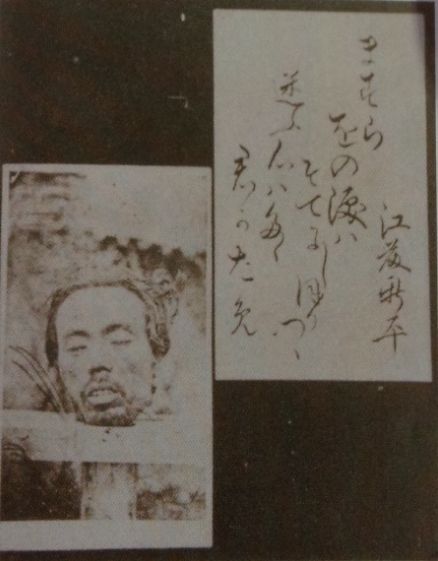 江藤新平
ますら
をの涙ハ
そてにしほりつゝ
迷ふ心ハ多ゝ
君か太免